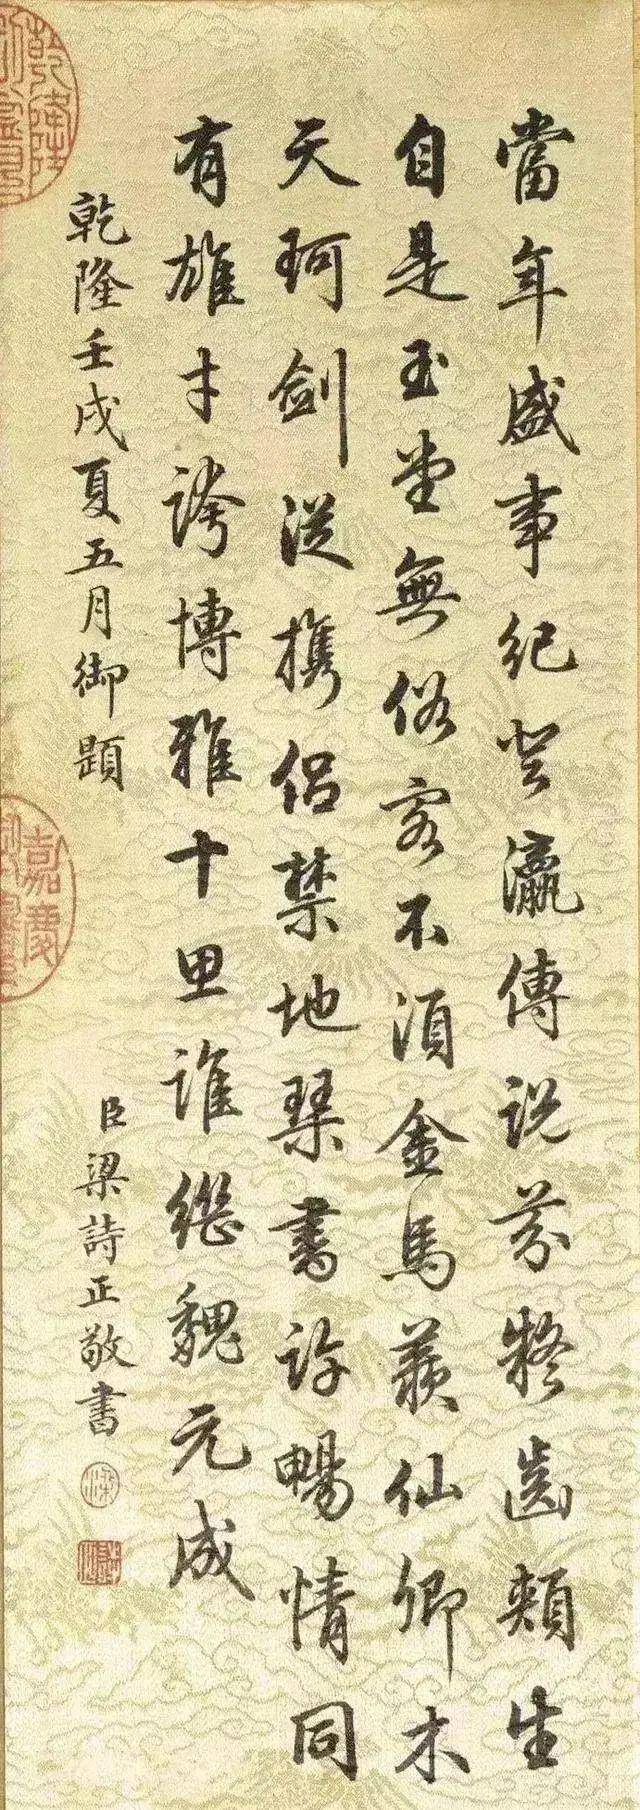 當年盛事紀登瀛傳説芬凝齒頰生
自是玉堂無俗客不須金馬羨仙卿木
天珂劍從携侣禁地琴書許暢情同
有雄才誇博雅十思誰繼魏元成
乾隆壬戌夏五月御題
臣梁詩正敬書
乾隆
嘉慶